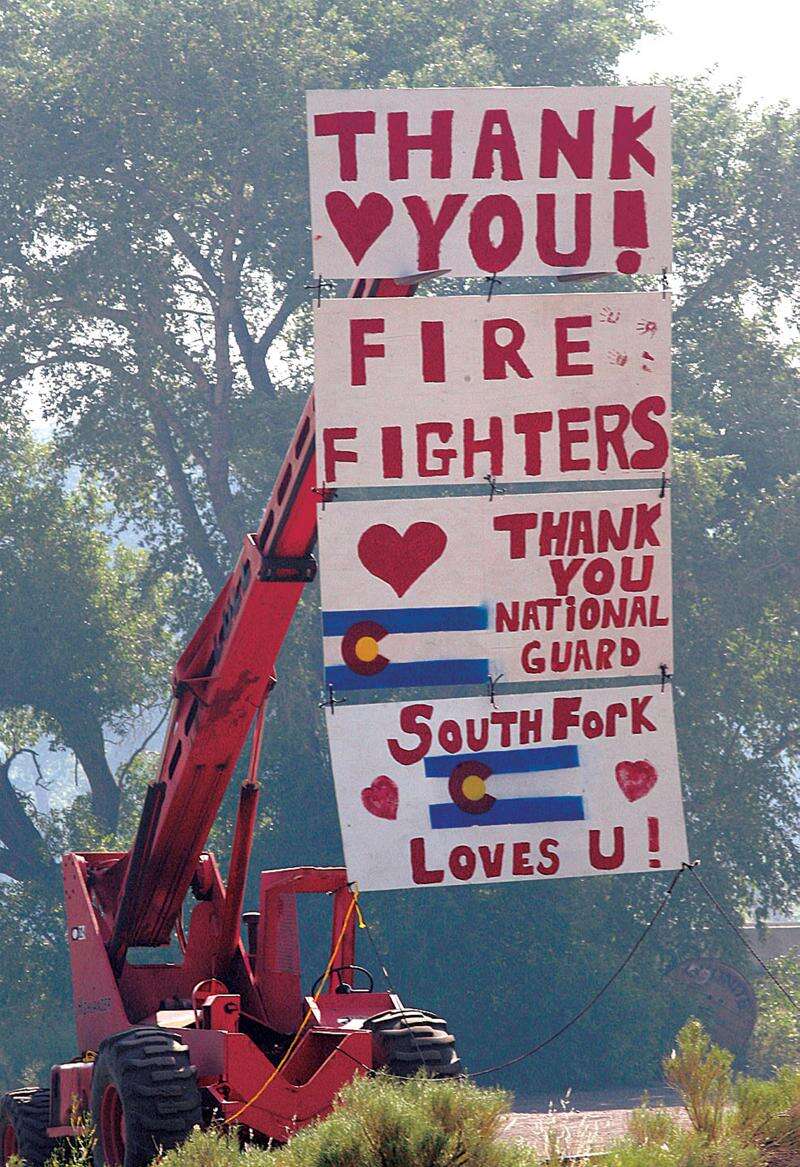 THANK
YOU!
FIRE
FIGHTERS
THANK
YOU
NATIONAL
GUARD
SOUTH FORK
LOVES U!